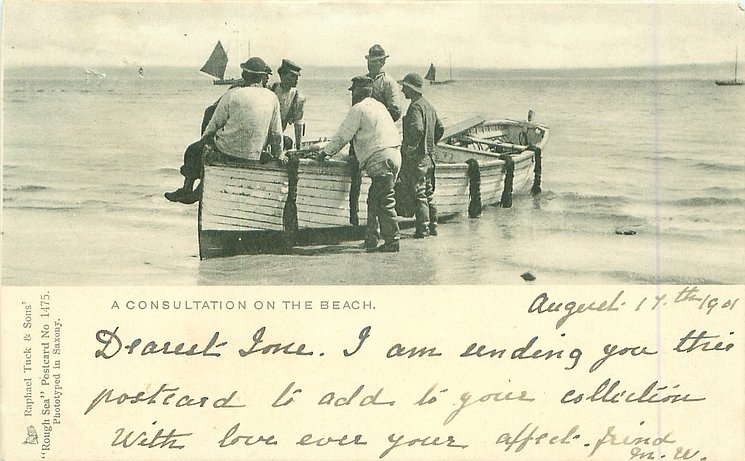 A CONSULTATION ON THE BEACH.
August 17th 1901
Dearest Ione. I am sending you this
postcard to add to your collection
With love ever your affect. frind
M. W.
Raphael Tuck & Sons'
"Rough Sea" Postcard No 1475.
Phototyped in Saxony.